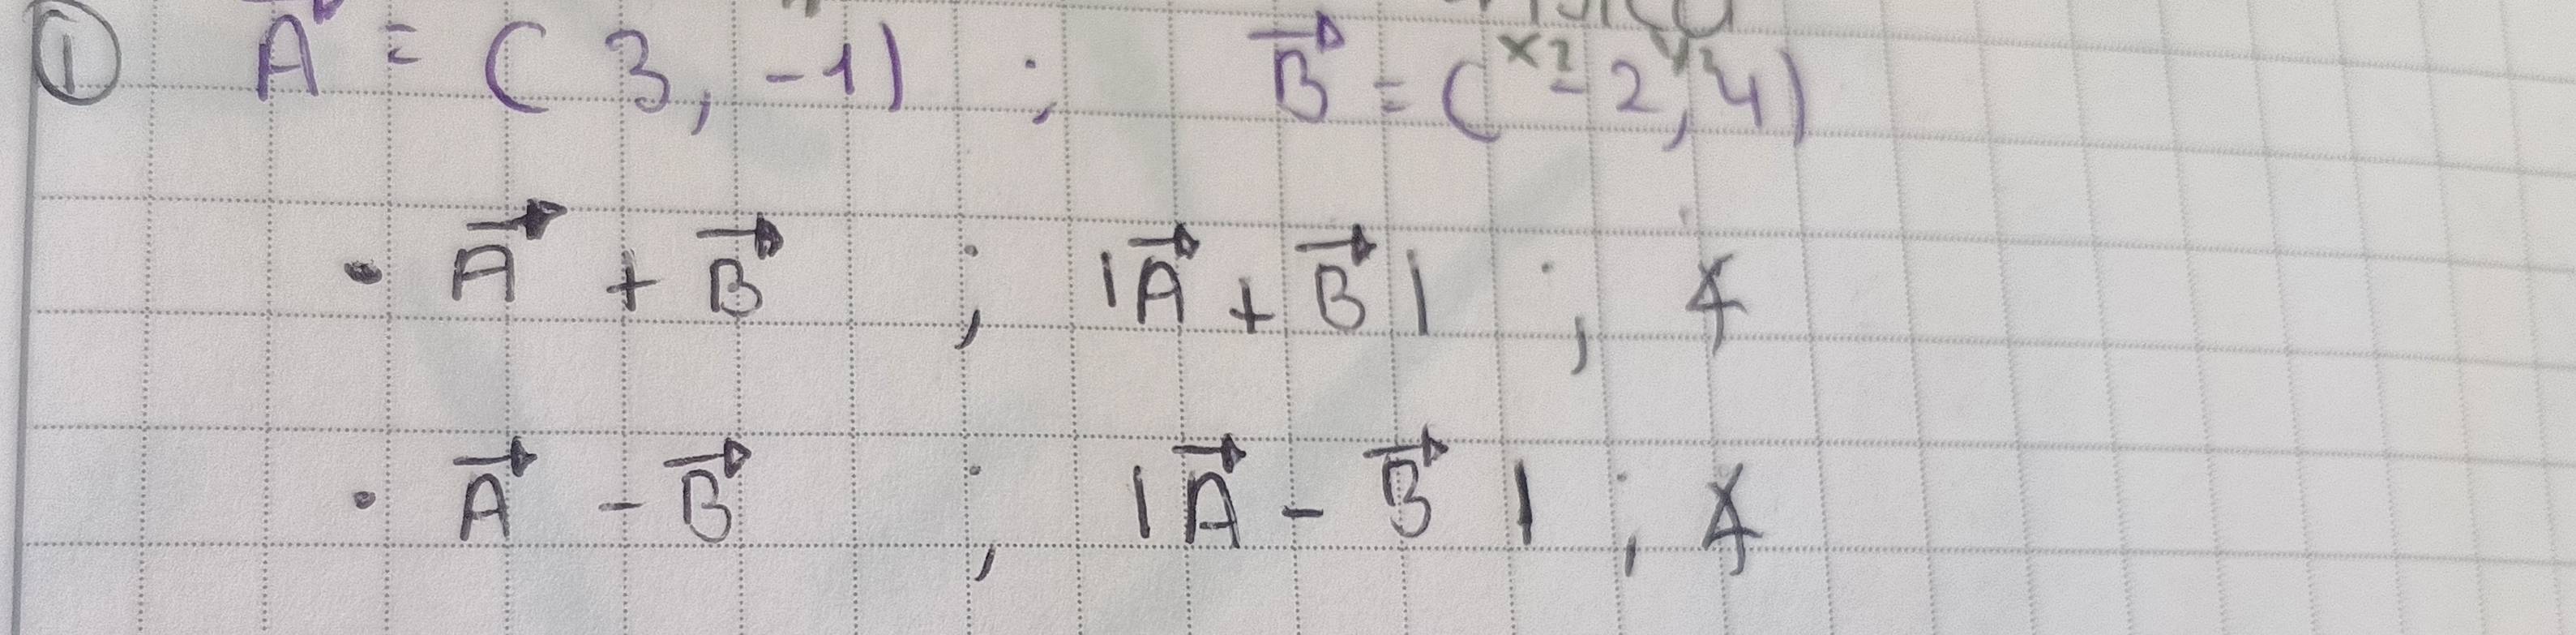 ① A⃗ = ( 3, -1) ; B⃗ = ( -2, 4)
x2 y2
• A⃗ + B⃗ ; |A⃗ + B⃗| ; ∡
• A⃗ - B⃗ ; |A⃗ - B⃗| ; ∡